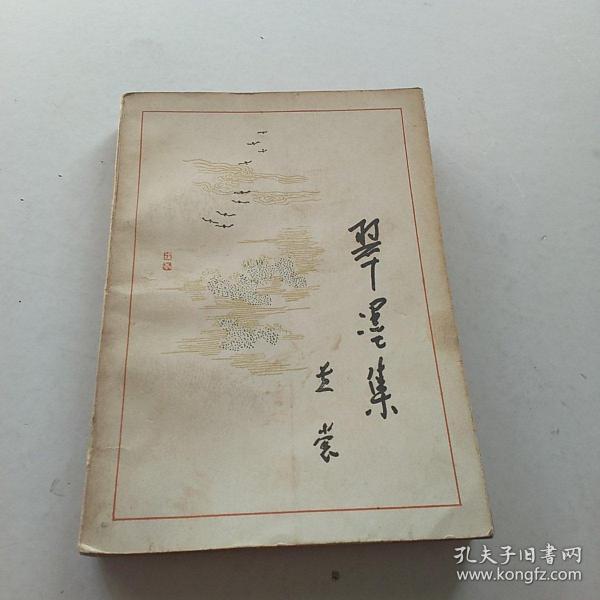 翠墨集
黄裳
孔夫子旧书网
www.kongfz.com